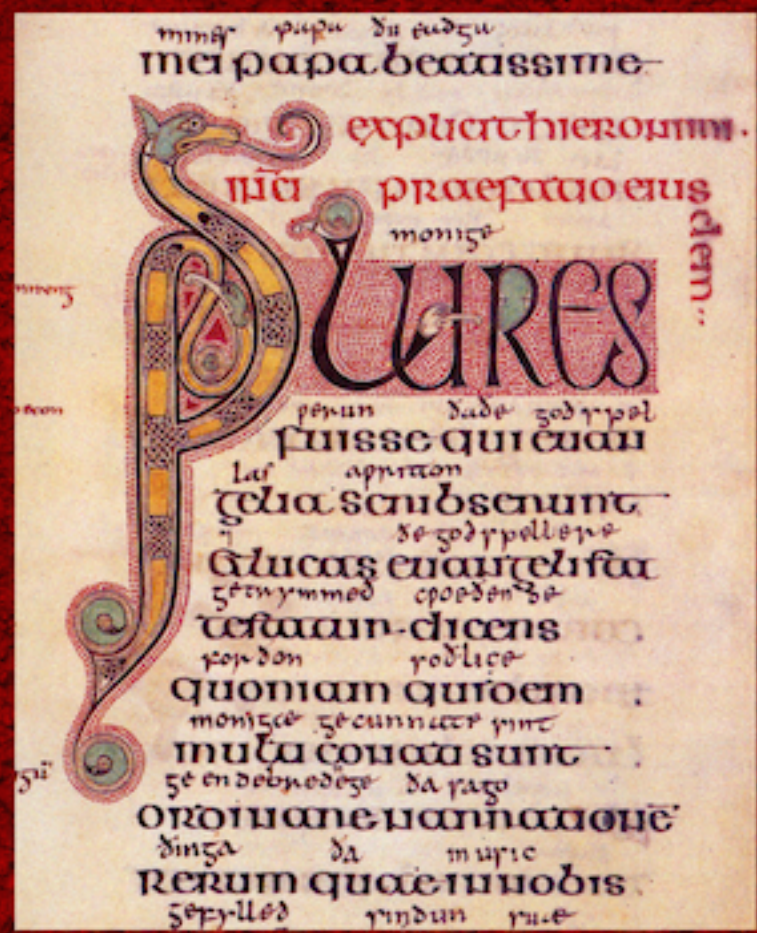 mines papa ðu eadgu
mei papa beatissime
explicit hieronimi.
praefatio eius
dem
monige
PLURES
ƿerun ðaðe godspel
fuisse qui euan
las aƿriton
gelia scribserunt
⁊ ðe godspellere
& lucas euangelista
getrymmeð cƿoeðende
testatur dicens
forðon soðlice
quoniam quidem
monigce gecunnate sint
multi conati sunt
geendebredege ða sago
ordinare narrationē
ðinga ða in usic
rerum quae in nobis
gefylled sindun